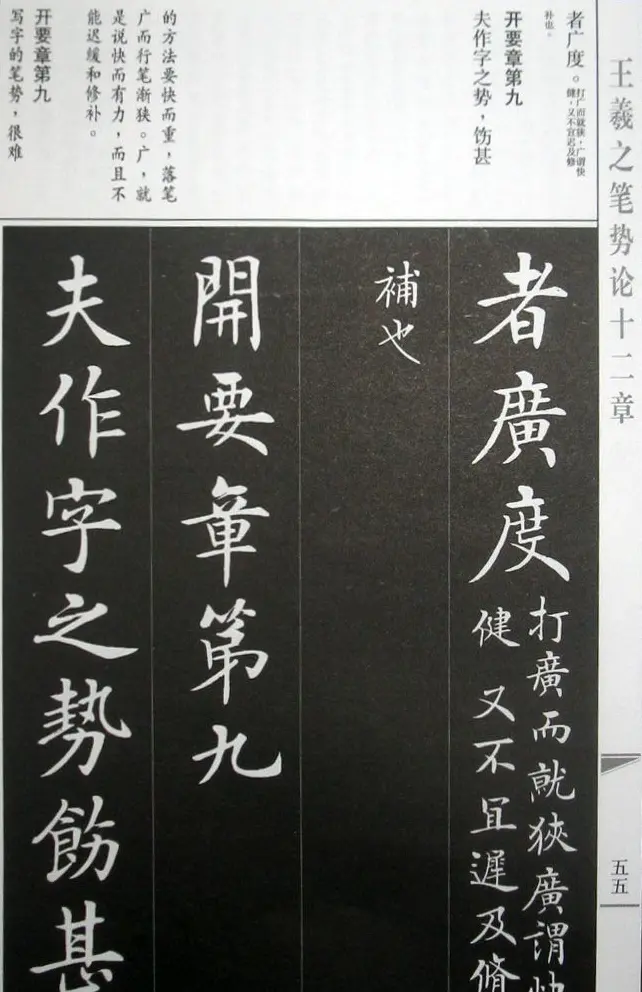 王羲之笔势论十二章
五五
者广度。打广而就狭，广谓快
健，又不宜迟及修
补也。
开要章第九
夫作字之势，饬甚
的方法要快而重，落笔
广而行笔渐狭。广，就
是说快而有力，而且不
能迟缓和修补。
开要章第九
写字的笔势，很难
者廣度
打廣而就狹廣謂快
健又不宜遲及脩
補也
開要章第九
夫作字之勢飭甚